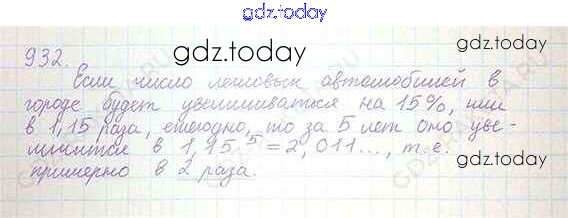 gdz.today
932.
gdz.today
Если число легковых автомобилей в
городе будет увеличиваться на 15%, или
в 1,15 раза, ежегодно, то за 5 лет оно уве-
gdz.today
личится в 1,15⁵ = 2,011..., т.е.
gdz.today
примерно в 2 раза.